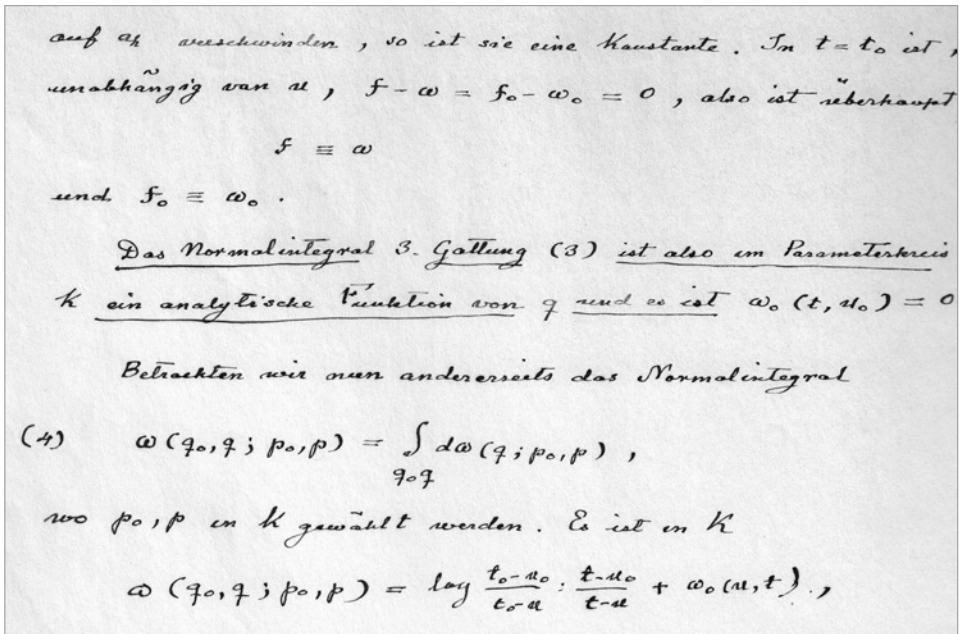 auf aₕ verschwinden, so ist sie eine Konstante. In t = t₀ ist,
unabhängig von u, f - ω = f₀ - ω₀ = 0, also ist überhaupt
f ≡ ω
und f₀ ≡ ω₀.
Das Normalintegral 3. Gattung (3) ist also im Parameterkreis
K ein analytische Funktion von q und es ist ω₀ (t, u₀) = 0
Betrachten wir nun andererseits das Normalintegral
(4) ω (q₀, q; p₀, p) = ∫_{q₀q} dω (q; p₀, p),
wo p₀, p in K gewählt werden. Es ist in K
ω (q₀, q; p₀, p) = log \frac{t₀-u₀}{t₀-u} : \frac{t-u₀}{t-u} + ω₀(u, t).,